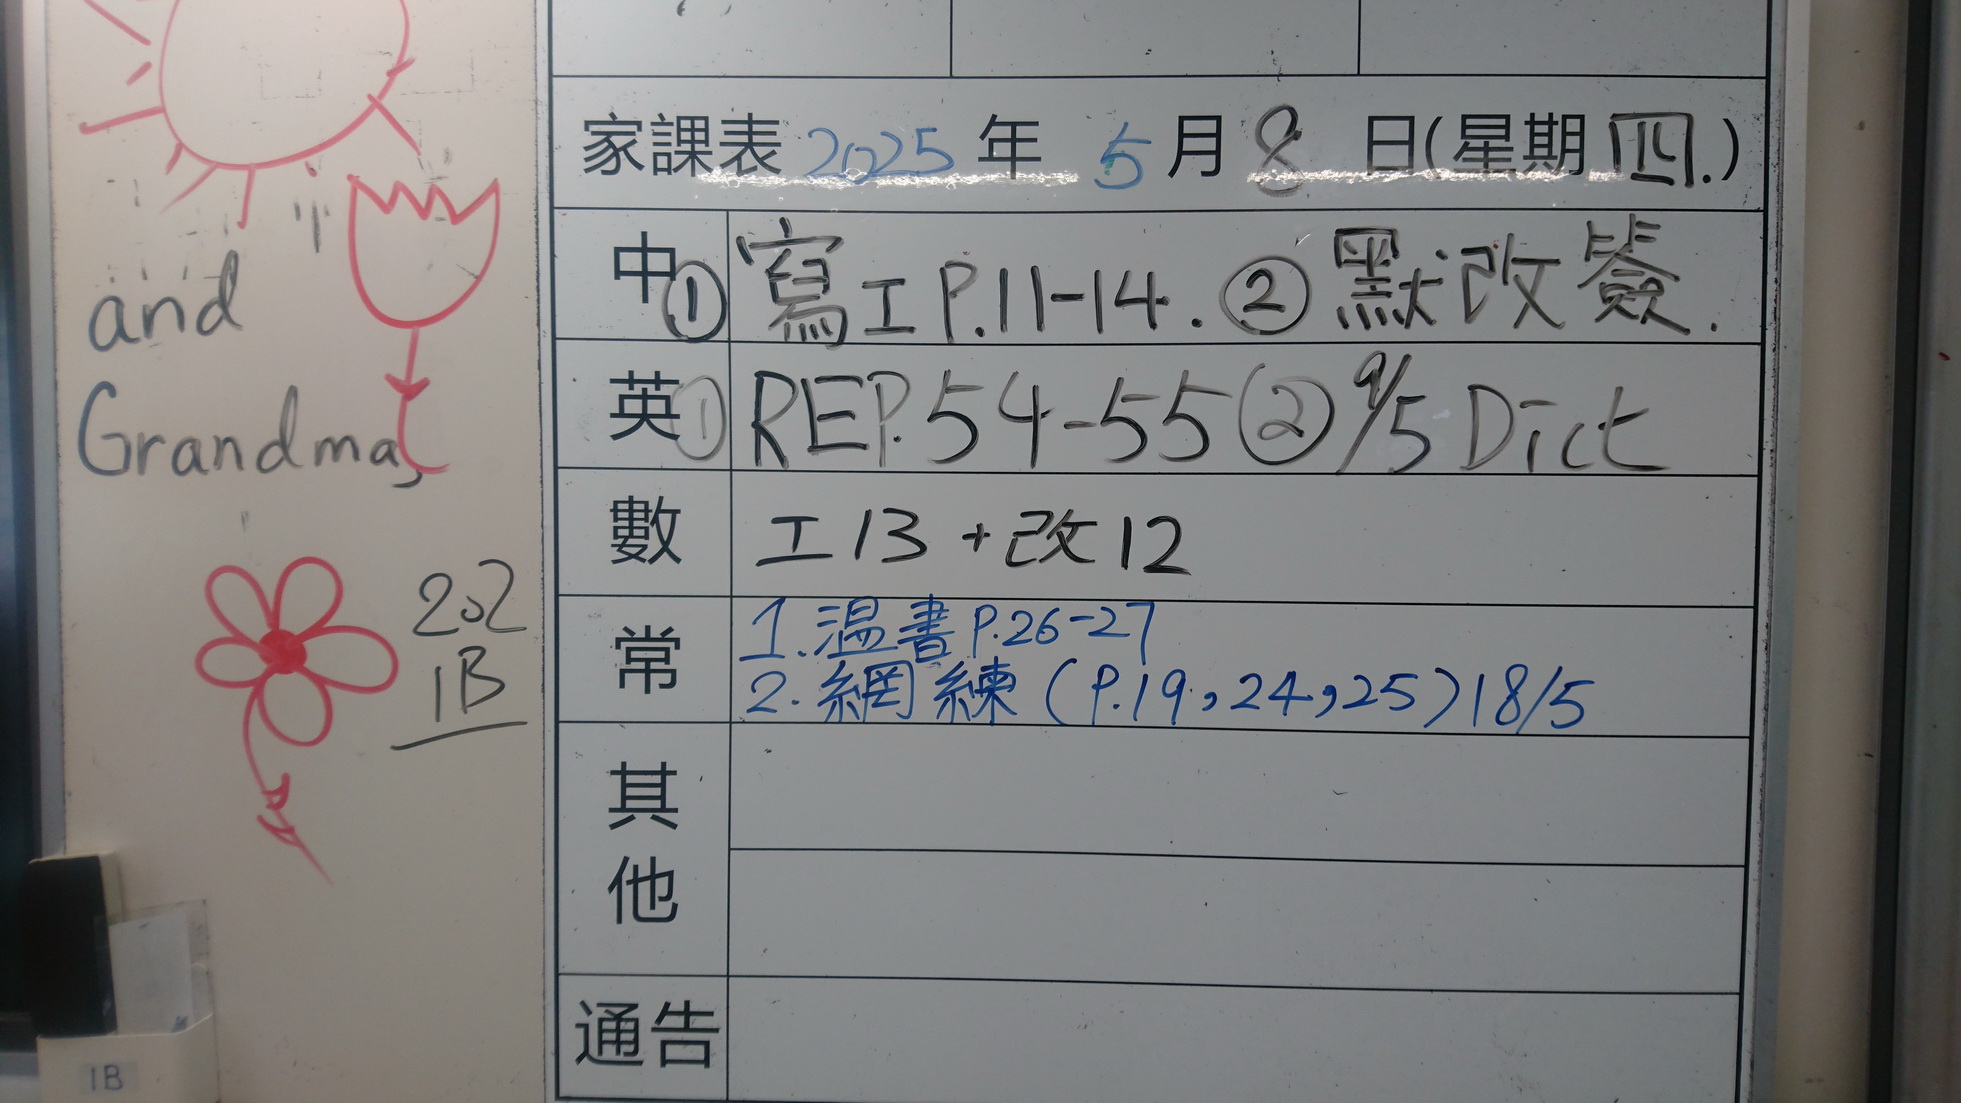 and
Grandma,
202
1B
1B
家課表 2025 年 5 月 8 日(星期四.)
中 ① 寫工P.11-14. ② 默改簽.
英 ① REP.54-55 ② 9/5 Dict
數 工13 + 改12
常 1. 溫書 P.26-27
2. 網練 (P.19,24,25) 18/5
其他
通告